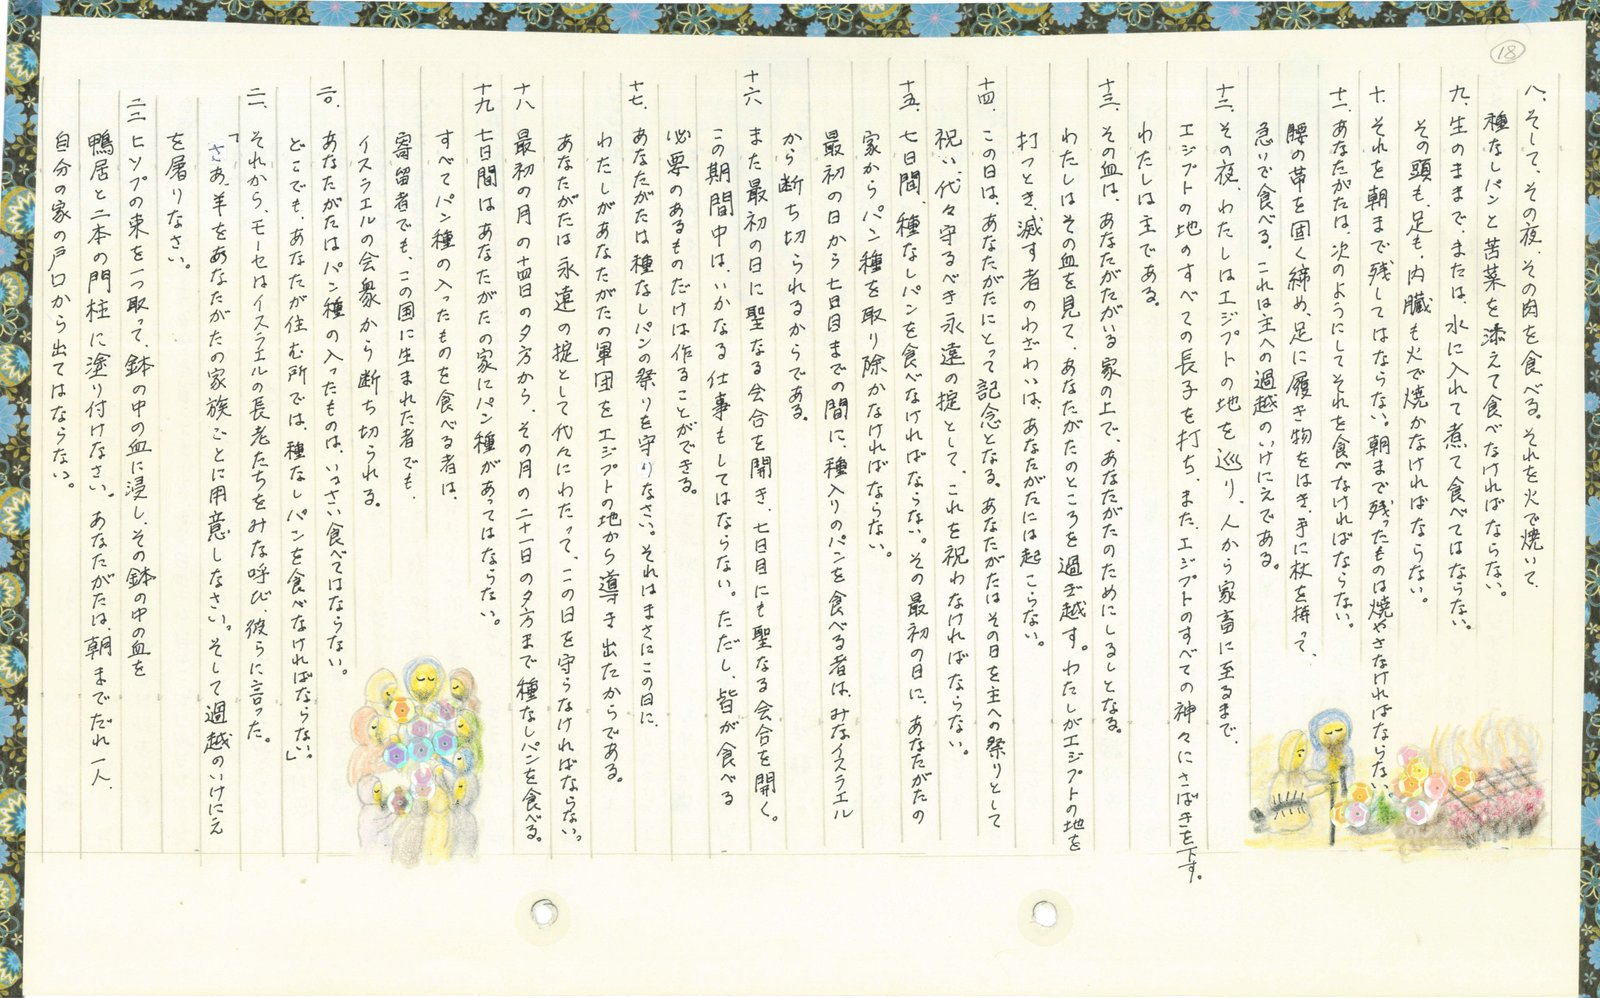 18
八、そして、その夜、その肉を食べる。それを火で焼いて、
種なしパンと苦菜を添えて食べなければならない。
九、生のままで、または、水に入れて煮て食べてはならない。
その頭も、足も、内臓も火で焼かなければならない。
十、それを朝まで残してはならない。朝まで残ったものは焼やさなければならない。
十一、あなたがたは、次のようにしてそれを食べなければならない。
腰の帯を固く締め、足に履き物をはき、手に杖を持って、
急いで食べる。これは主への過越のいけにえである。
十二、その夜、わたしはエジプトの地を巡り、人から家畜に至るまで、
エジプトの地のすべての長子を打ち、また、エジプトのすべての神々にさばきを下す。
わたしは主である。
十三、その血は、あなたがたがいる家の上で、あなたがたのためにしるしとなる。
わたしはその血を見て、あなたがたのところを過ぎ越す。わたしがエジプトの地を
打つとき、滅す者のわざわいは、あなたがたには起こらない。
十四、この日は、あなたがたにとって記念となる。あなたがたはその日を主への祭りとして
祝い、代々守るべき永遠の掟として、これを祝わなければならない。
十五、七日間、種なしパンを食べなければならない。その最初の日に、あなたがたの
家からパン種を取り除かなければならない。
最初の日から七日目までの間に、種入りのパンを食べる者は、みなイスラエル
から断ち切られるからである。
十六、また最初の日に聖なる会合を開き、七日目にも聖なる会合を開く。
この期間中は、いかなる仕事もしてはならない。ただし、皆が食べる
必要のあるものだけは作ることができる。
十七、あなたがたは種なしパンの祭りを守りなさい。それはまさにこの日に、
わたしがあなたがたの軍団をエジプトの地から導き出たからである。
あなたがたは永遠の掟として代々にわたって、この日を守らなければならない。
十八、最初の月の十四日の夕方から、その月の二十一日の夕方まで種なしパンを食べる。
十九、七日間はあなたがたの家にパン種があってはならない。
すべてパン種の入ったものを食べる者は、
寄留者でも、この国に生まれた者でも、
イスラエルの会衆から断ち切られる。
二〇、あなたがたはパン種の入ったものは、いっさい食べてはならない。
どこでも、あなたが住む所では、種なしパンを食べなければならない」
二一、それから、モーセはイスラエルの長老たちをみな呼び、彼らに言った。
「さあ、羊をあなたがたの家族ごとに用意しなさい。そして過越のいけにえ
を屠りなさい。
二二、ヒソプの束を一つ取って、鉢の中の血に浸し、その鉢の中の血を
鴨居と二本の門柱に塗り付けなさい。あなたがたは、朝までだれ一人、
自分の家の戸口から出てはならない。